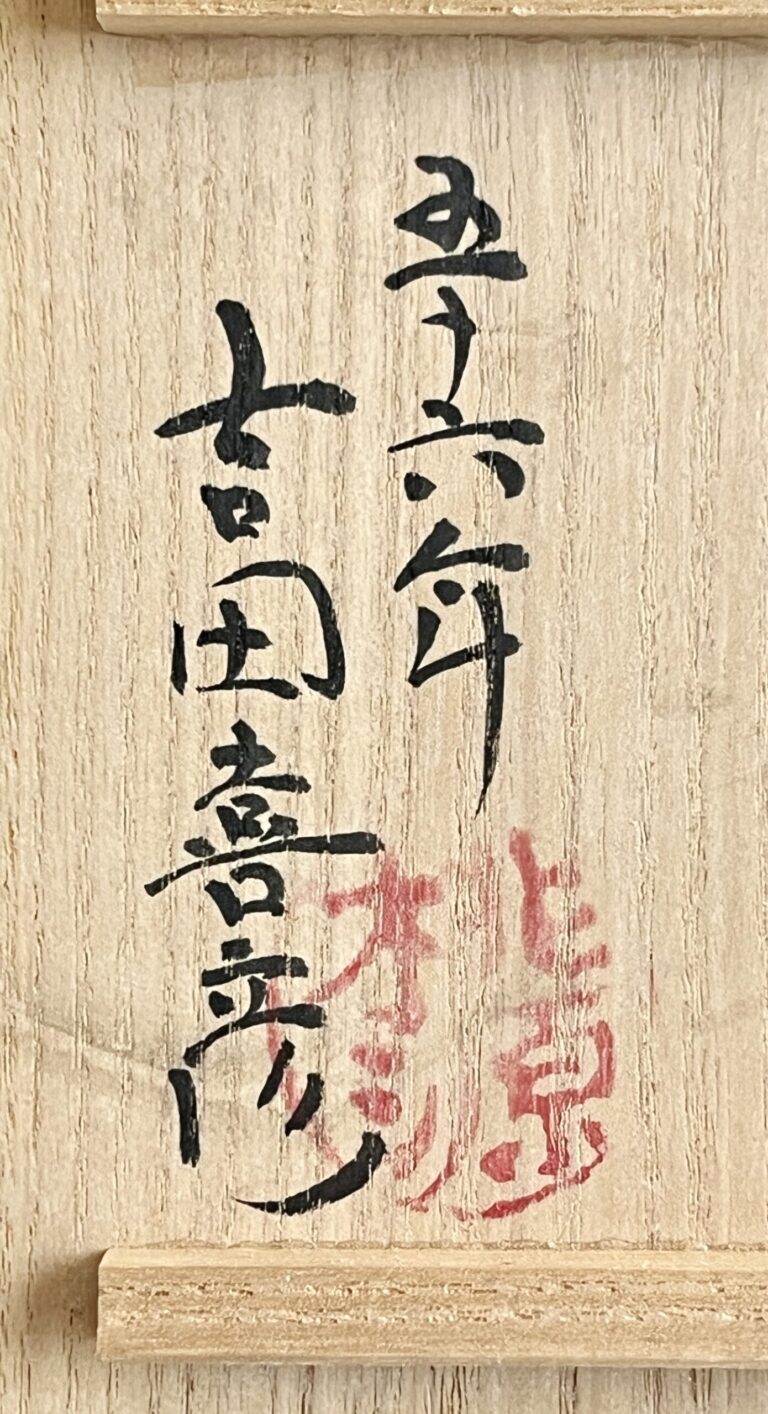 五十六年
吉田喜彦